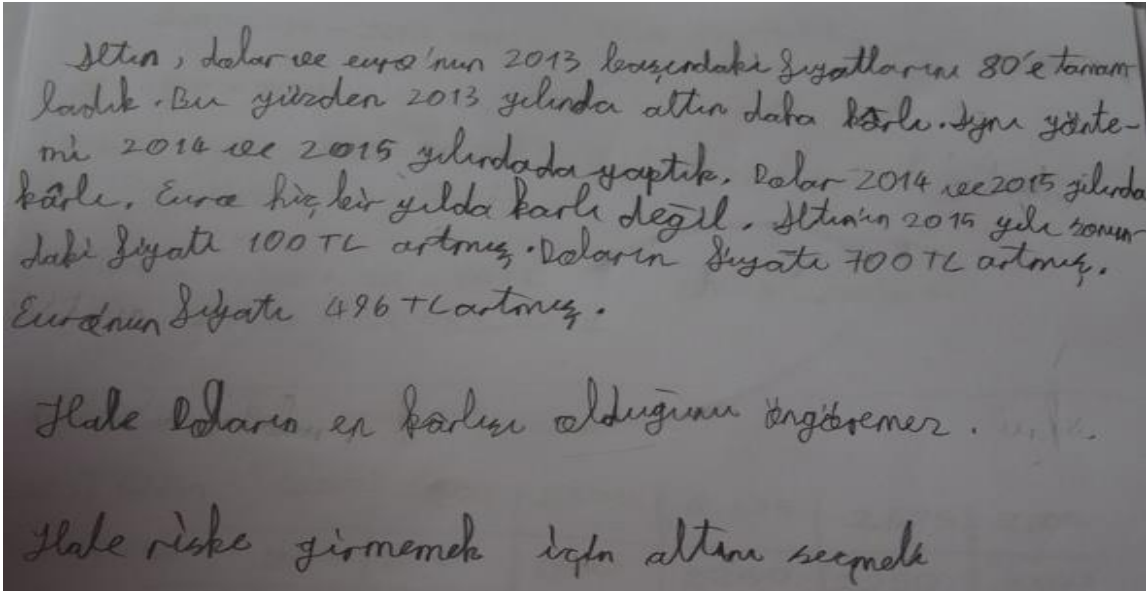 Altın, dolar ve euro'nun 2013 başındaki fiyatlarını 80'e tamam
ladık. Bu yüzden 2013 yılında altın daha kârlı. Aynı yönte-
mi 2014 ve 2015 yılındada yaptık. Dolar 2014 ve 2015 yılında
kârlı. Euro hiç bir yılda karlı değil. Altın'ın 2015 yılı sonun-
daki fiyatı 100 TL artmış. Doların fiyatı 700 TL artmış.
Euronun fiyatı 496 TL artmış.
Hale Doların en kârlısı olduğunu öngöremez.
Hale riske girmemek için altını seçmeli